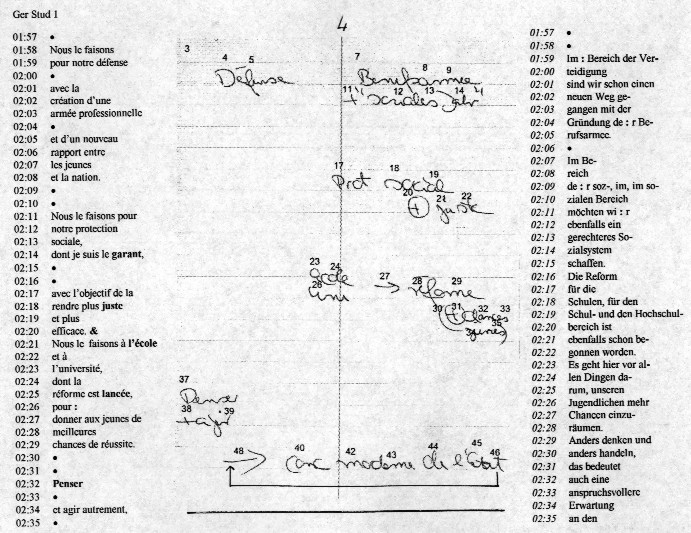 Ger Stud 1
01:57 •
01:58 Nous le faisons
01:59 pour notre défense
02:00 •
02:01 avec la
02:02 création d'une
02:03 armée professionnelle
02:04 •
02:05 et d'un nouveau
02:06 rapport entre
02:07 les jeunes
02:08 et la nation.
02:09 •
02:10 •
02:11 Nous le faisons pour
02:12 notre protection
02:13 sociale,
02:14 dont je suis le garant,
02:15 •
02:16 •
02:17 avec l'objectif de la
02:18 rendre plus juste
02:19 et plus
02:20 efficace. &
02:21 Nous le faisons à l'école
02:22 et à
02:23 l'université,
02:24 dont la
02:25 réforme est lancée,
02:26 pour :
02:27 donner aux jeunes de
02:28 meilleures
02:29 chances de réussite.
02:30 •
02:31 •
02:32 Penser
02:33 •
02:34 et agir autrement,
02:35 •
4
3
4 5
Défense
7 8 9
Berufsarmee
11 12 13 14
+ soziales Jahr
17 18 19
Prot social
20 21 22
+ juste
23 24
école
26
uni
27
→
28 29
réforme
30 31 32 33
+ chances
35
jeunes
37
Penser
38 39
+ agir
48 40 42 43 44 45 46
→ Conc moderne de l'Etat
01:57 •
01:58 •
01:59 Im : Bereich der Ver-
02:00 teidigung
02:01 sind wir schon einen
02:02 neuen Weg ge-
02:03 gangen mit der
02:04 Gründung de : r Be-
02:05 rufsarmee.
02:06 •
02:07 Im Be-
02:08 reich
02:09 de : r soz-, im, im so-
02:10 zialen Bereich
02:11 möchten wi : r
02:12 ebenfalls ein
02:13 gerechteres So-
02:14 zialsystem
02:15 schaffen.
02:16 Die Reform
02:17 für die
02:18 Schulen, für den
02:19 Schul- und den Hochschul-
02:20 bereich ist
02:21 ebenfalls schon be-
02:22 gonnen worden.
02:23 Es geht hier vor al-
02:24 len Dingen da-
02:25 rum, unseren
02:26 Jugendlichen mehr
02:27 Chancen einzu-
02:28 räumen.
02:29 Anders denken und
02:30 anders handeln,
02:31 das bedeutet
02:32 auch eine
02:33 anspruchsvollere
02:34 Erwartung
02:35 an den